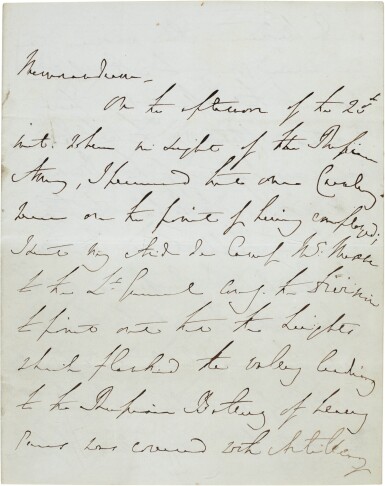 Memorandum —
On the afternoon of the 25th
inst: when in sight of the Russian
Army, I perceived that our Cavalry
were on the point of being employed;
I sent my Aid de Camp
to the Lt. General comg. the Division
to point out that the heights
which flanked the valley leading
to the Russian Battery of heavy
Guns was covered with Artillery